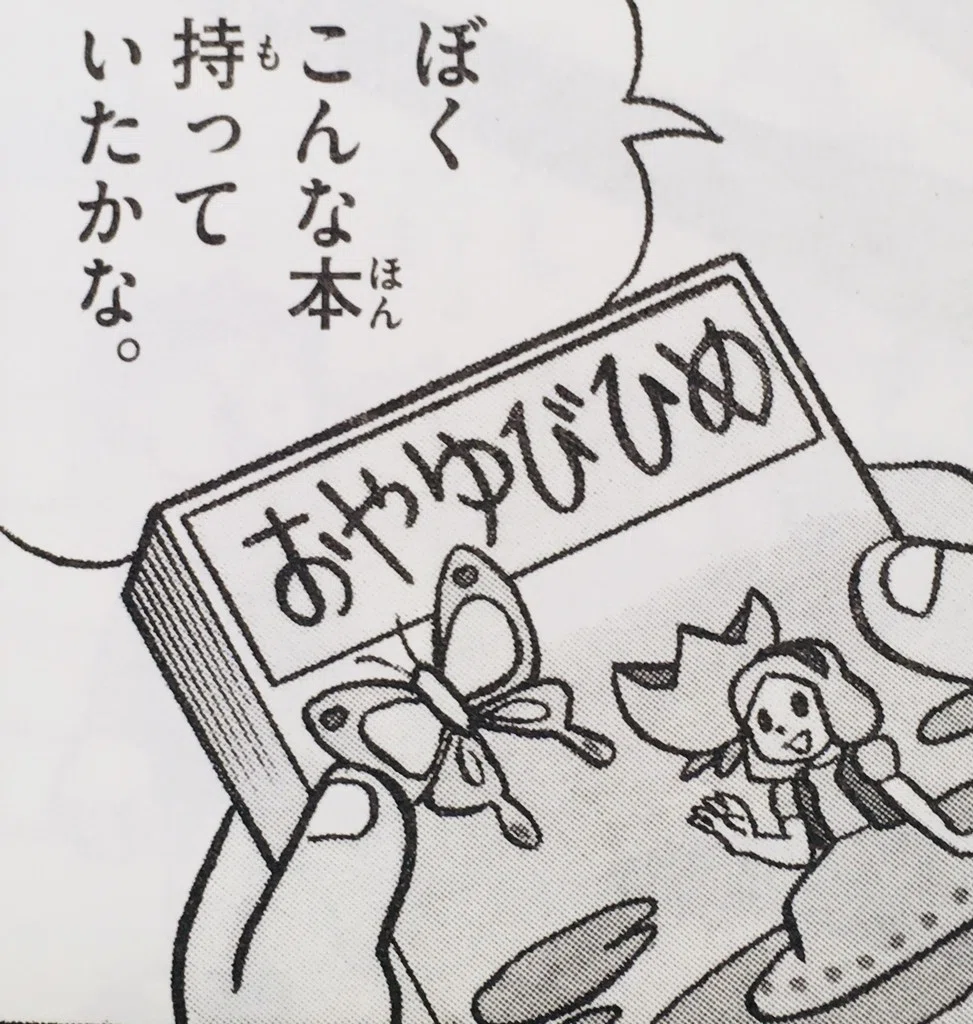 ぼく
こんな本
持って
いたかな。
ほん
も
おやゆびひめ